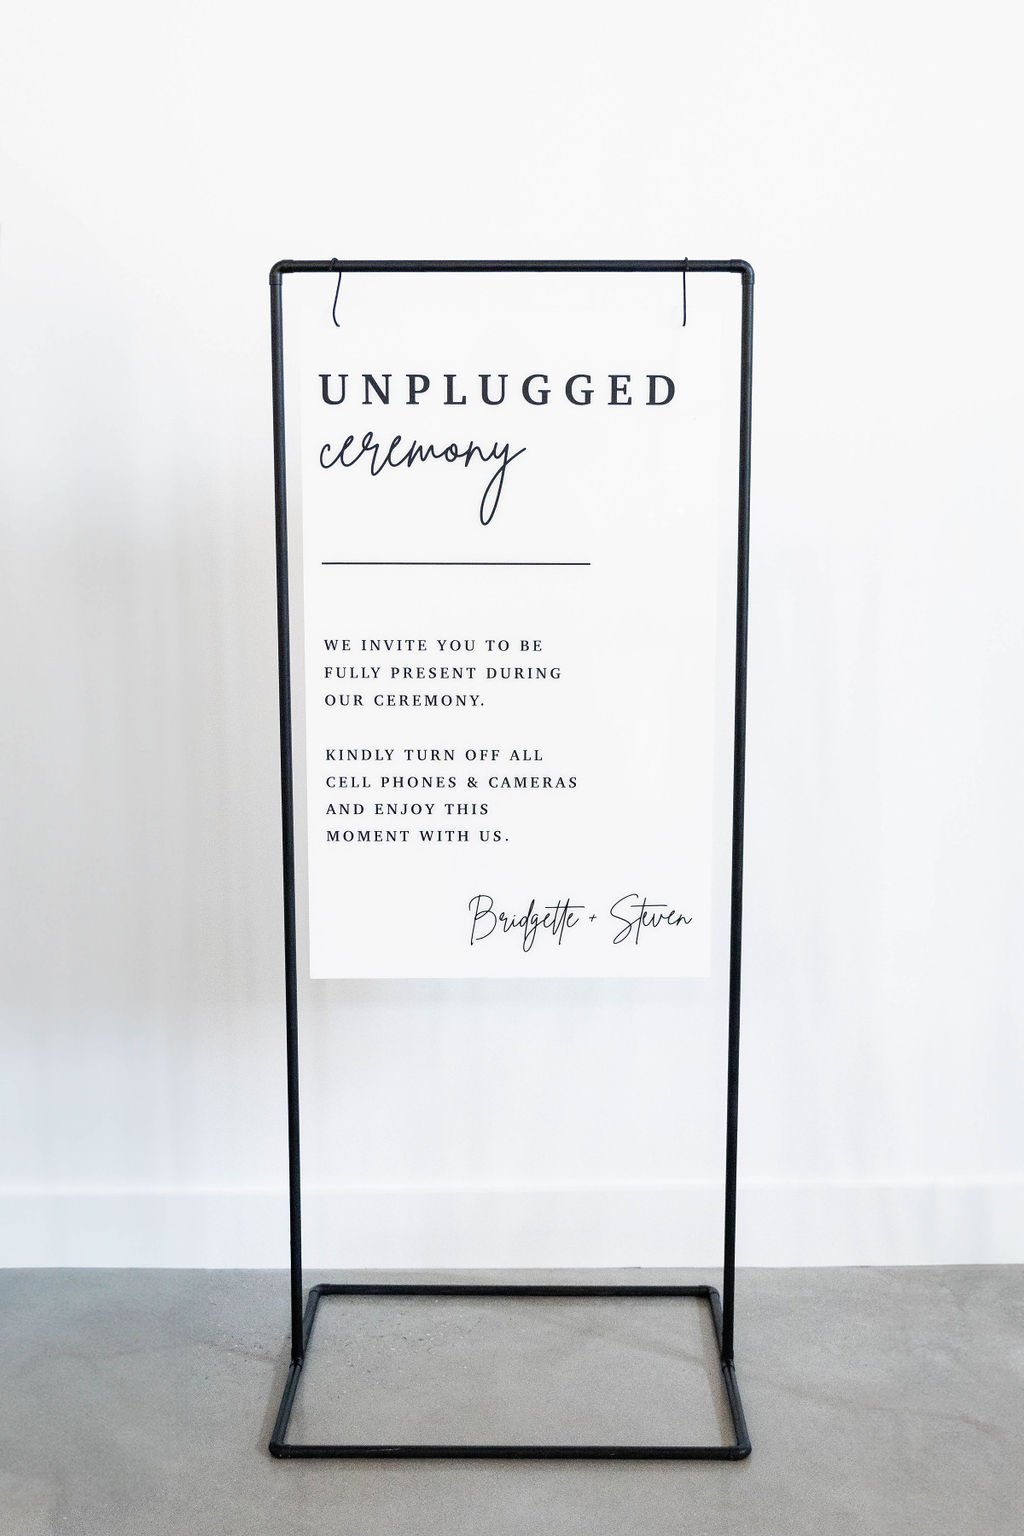 UNPLUGGED
ceremony
WE INVITE YOU TO BE
FULLY PRESENT DURING
OUR CEREMONY.
KINDLY TURN OFF ALL
CELL PHONES & CAMERAS
AND ENJOY THIS
MOMENT WITH US.
Bridgette + Steven